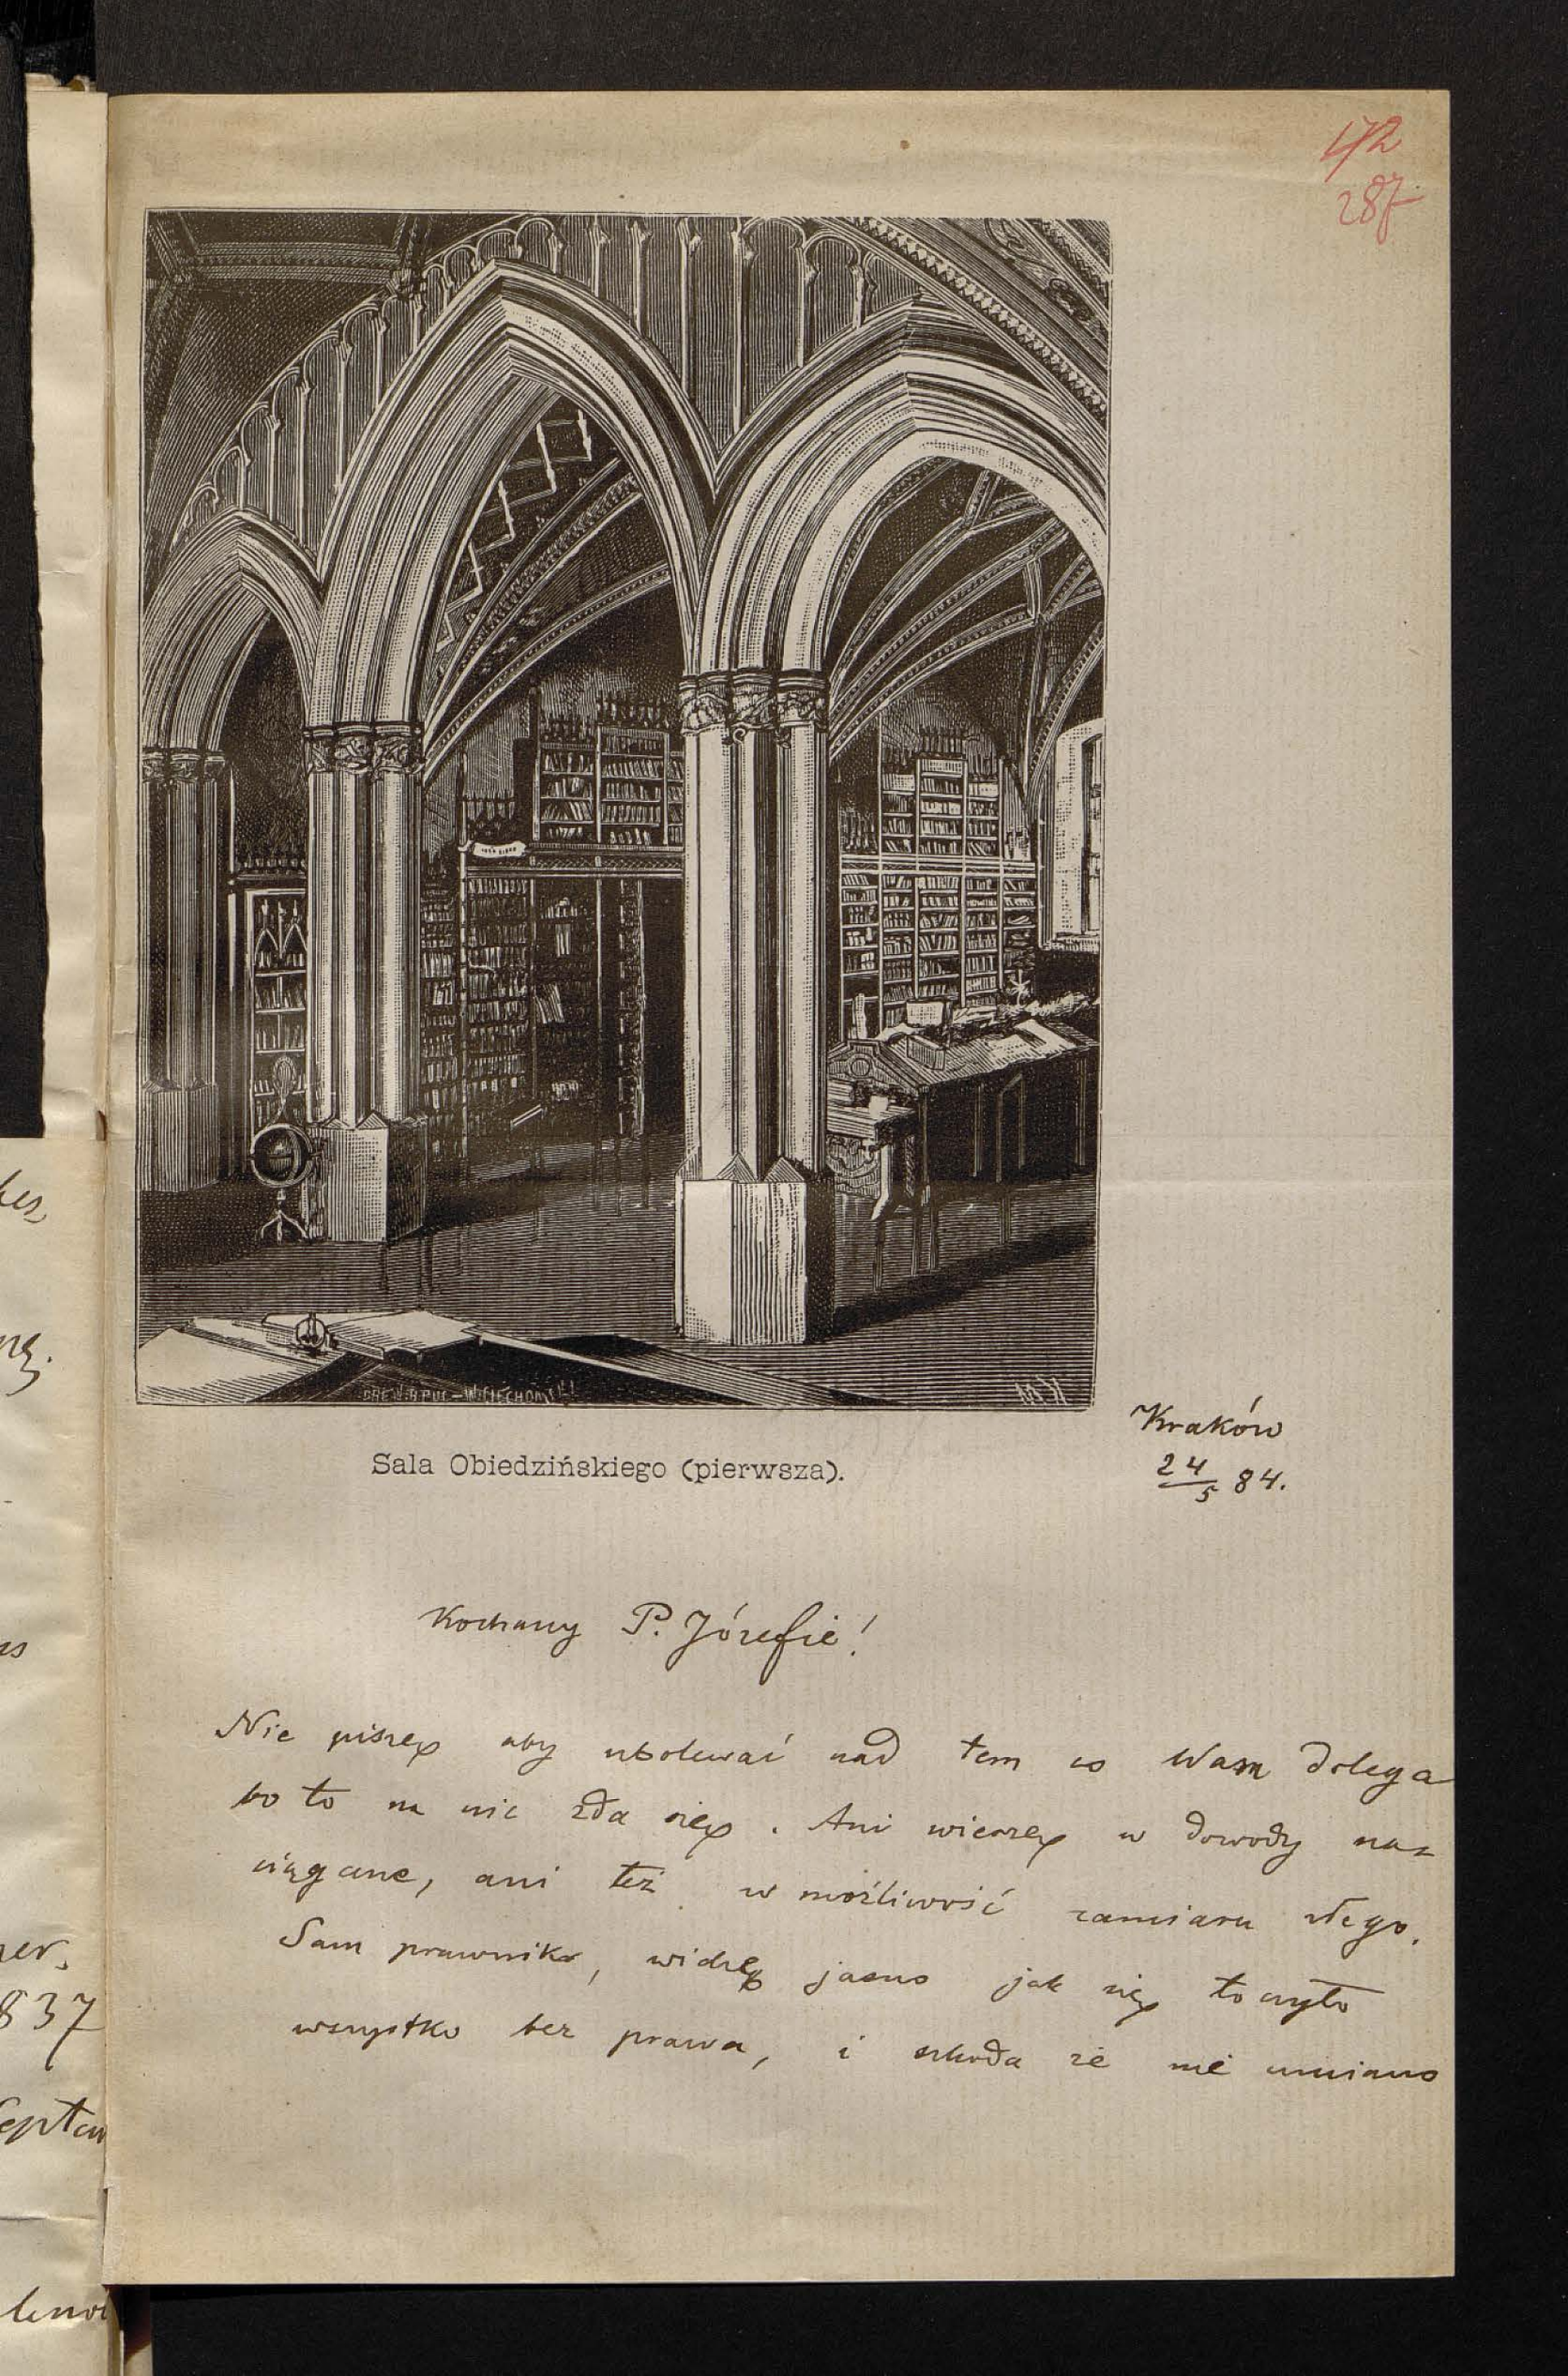 172
287
Sala Obiedzińskiego (pierwsza).
Kraków
24/5 84.
Kochany P. Józefie!
Nie piszę aby ubolewać nad tem co Wam dolega
bo to na nic zda się. Ani wierzę w dowody na=
ciągane, ani też w możliwość zamiaru złego.
Sam prawnik, widzę jasno jak się toczyło
wszystko bez prawa, i szkoda że nie umiano
837